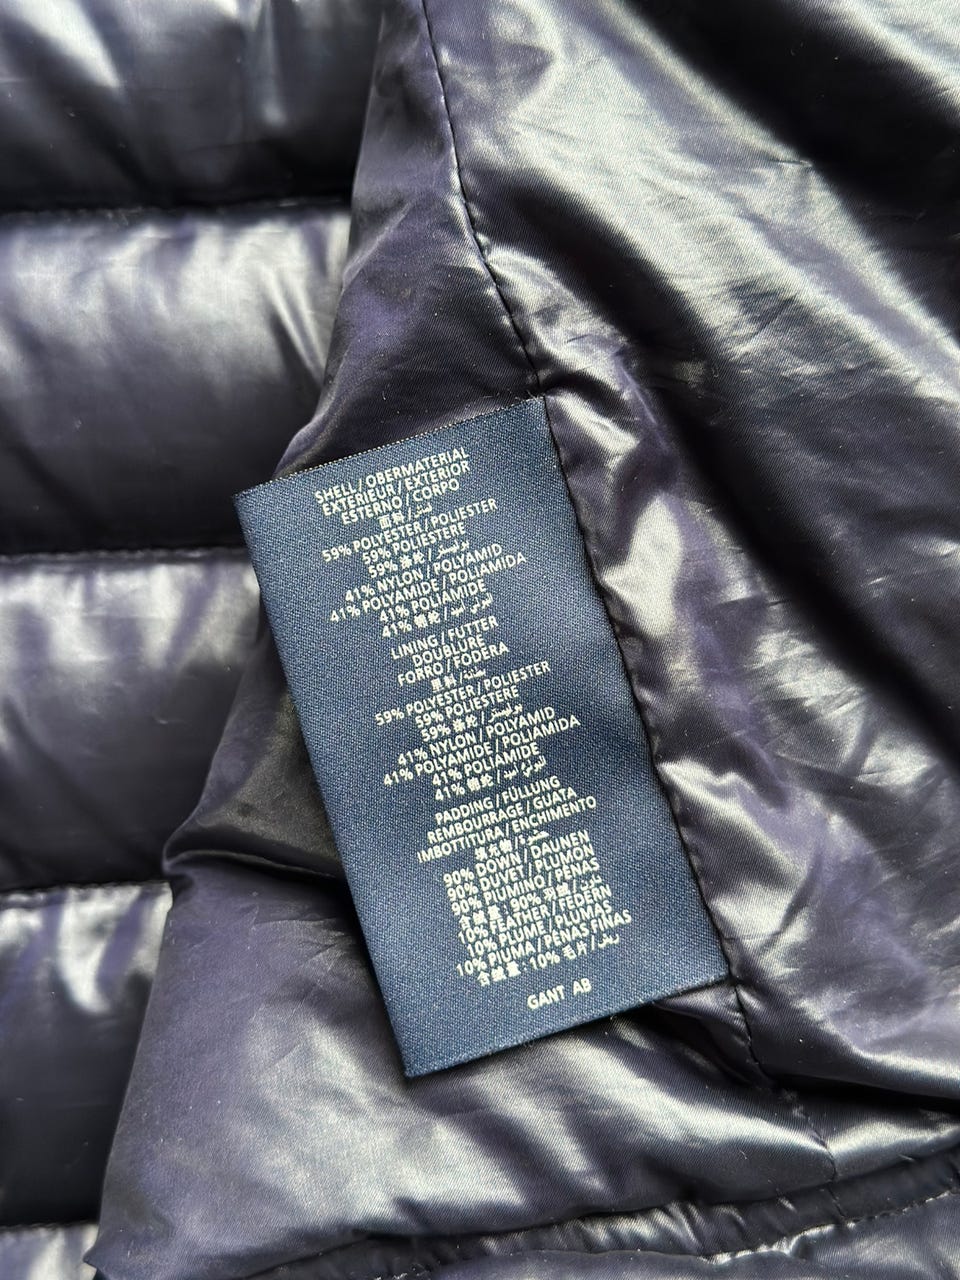 SHELL / OBERMATERIAL
EXTÉRIEUR / EXTERIOR
ESTERNO / CORPO
面料 / قماش
59% POLYESTER / POLIESTER
59% POLIESTERE
59% 涤纶 / بوليستر
41% NYLON / POLYAMID
41% POLYAMIDE / POLIAMIDA
41% POLIAMIDE
41% 锦纶 /
LINING / FUTTER
DOUBLURE
FORRO / FODERA
里料 / بطانة
59% POLYESTER / POLIESTER
59% POLIESTERE
59% 涤纶 / بوليستر
41% NYLON / POLYAMID
41% POLYAMIDE / POLIAMIDA
41% POLIAMIDE
41% 锦纶 /
PADDING / FÜLLUNG
REMBOURRAGE / GUATA
IMBOTTITURA / ENCHIMENTO
填充物 / حشوة
90% DOWN / DAUNEN
90% DUVET / PLUMÓN
90% PIUMINO / PENAS
含绒量: 90% 羽绒 /
10% FEATHER / FEDERN
10% PLUME / PLUMAS
10% PIUMA / PENAS FINAS
含绒量: 10% 毛片 / ريش
GANT AB